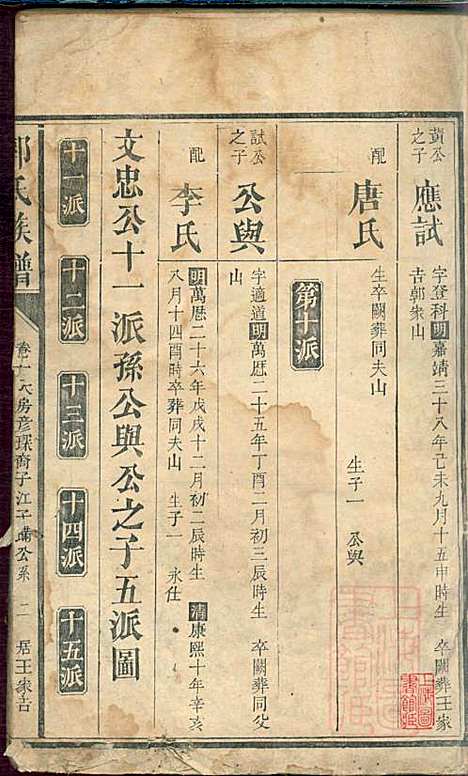 黃公之子
應試
字登科明嘉靖三十八年己未九月十五申時生 卒闕葬王家
吉郭家山
配
唐氏
生卒闕葬同夫山 生子一 公與
第十派
試公之子
公與
字適道明萬厯二十五年丁酉二月初三辰時生 卒闕葬同父
山
配
李氏
明萬厯二十六年戊戌十二月初二辰時生 清康熙十年辛亥
八月十四酉時卒葬同夫山 生子一 永仕
文忠公十一派孫公與公之子五派圖
十一派 十二派 十三派 十四派 十五派
氏族譜
房彥琛裔子江 公系 二 居王家吉
上海圖書館藏